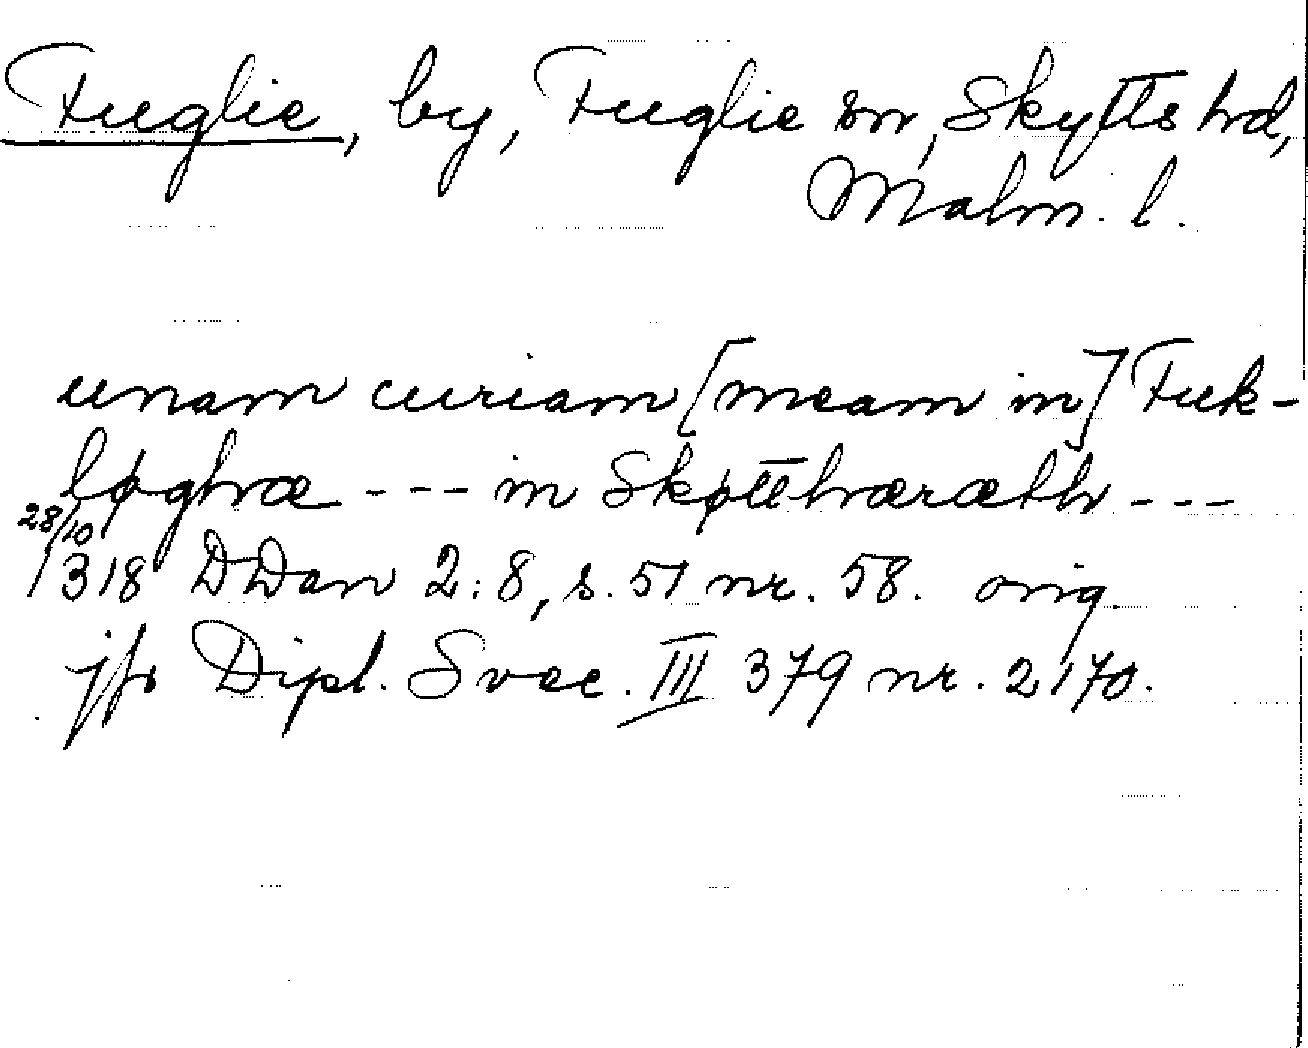 Fuglie, by, Fuglie sn, Skytts hd,
Malm. l.
unam curiam [meam in] Fuk-
løghræ --- in Skøtthæræth ---
28/10 1318 DDan 2:8, s. 51 nr. 58. orig.
jfr Dipl. Svec. III 379 nr. 2170.